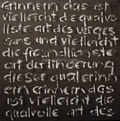 erinnern das ist
vielleicht die qualvo
llste art des verges
sens und vielleicht
die freundlichste
art der linderung
dieser qual erinn
ern erinnern das
ist vielleicht die
qualvolle art des